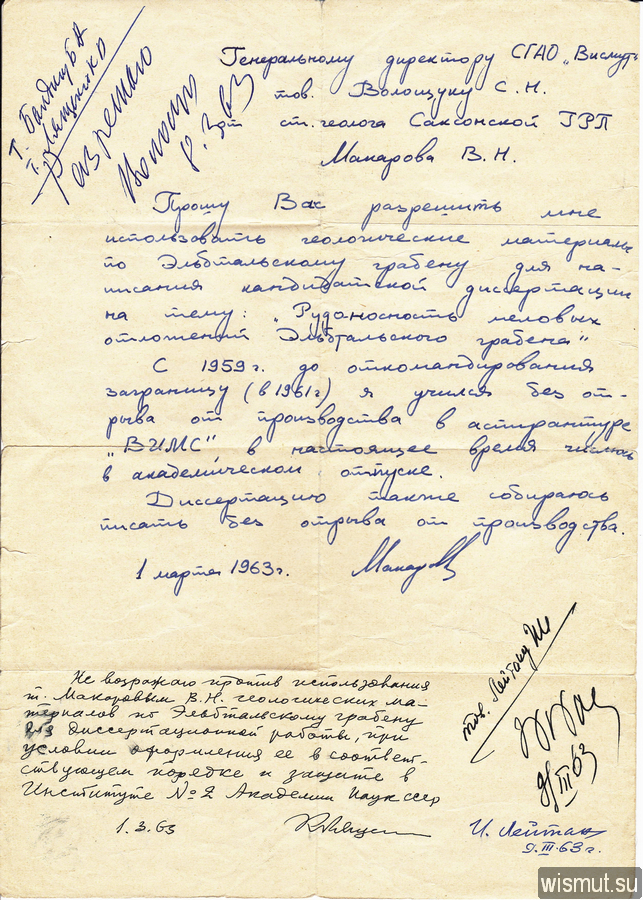 Т. Балдину Б.А.
т. Лященко
Разрешаю
8.3.63
Генеральному директору СГАО „Висмут“
тов. Волощуку С.Н.
ст. геолога Саксонской ГРП
Макарова В.Н.
Прошу Вас разрешить мне
использовать геологические материалы
по Эльбтальскому грабену для на-
писания кандидатской диссертации
на тему: „Рудоносность меловых
отложений Эльбтальского грабена“
С 1959 г. до откомандирования
заграницу (в 1961 г) я учился без от-
рыва от производства в аспирантуре
„ВИМС“, в настоящее время числюсь
в академическом отпуске.
Диссертацию также собираюсь
писать без отрыва от производства.
1 марта 1963 г. Макаров
Не возражаю против использования
т. Макаровым В.Н. геологических ма-
териалов по Эльбтальскому грабену
для диссертационной работы, при
условии оформления ее в соответ-
ствующем порядке и защите в
Институте №2 Академии Наук СССР
1.3.63
тов. Лейтану
III 63
И. Лейтан
9.III.63 г.
wismut.su